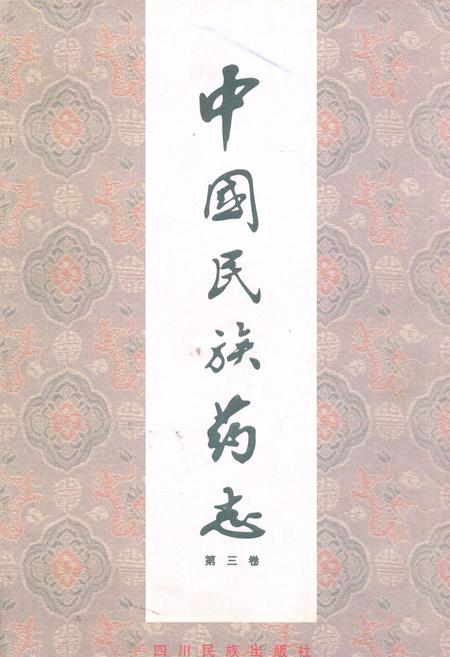 中國民族药志
第三卷
四川民族出版社